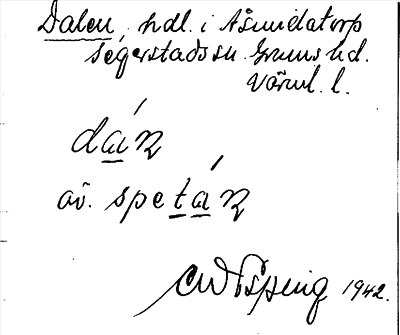 Dalen, hdl. i Åsmidatorp
Segerstads sn. Grums hd.
Värml. l.
dán
av. spetán
1942.